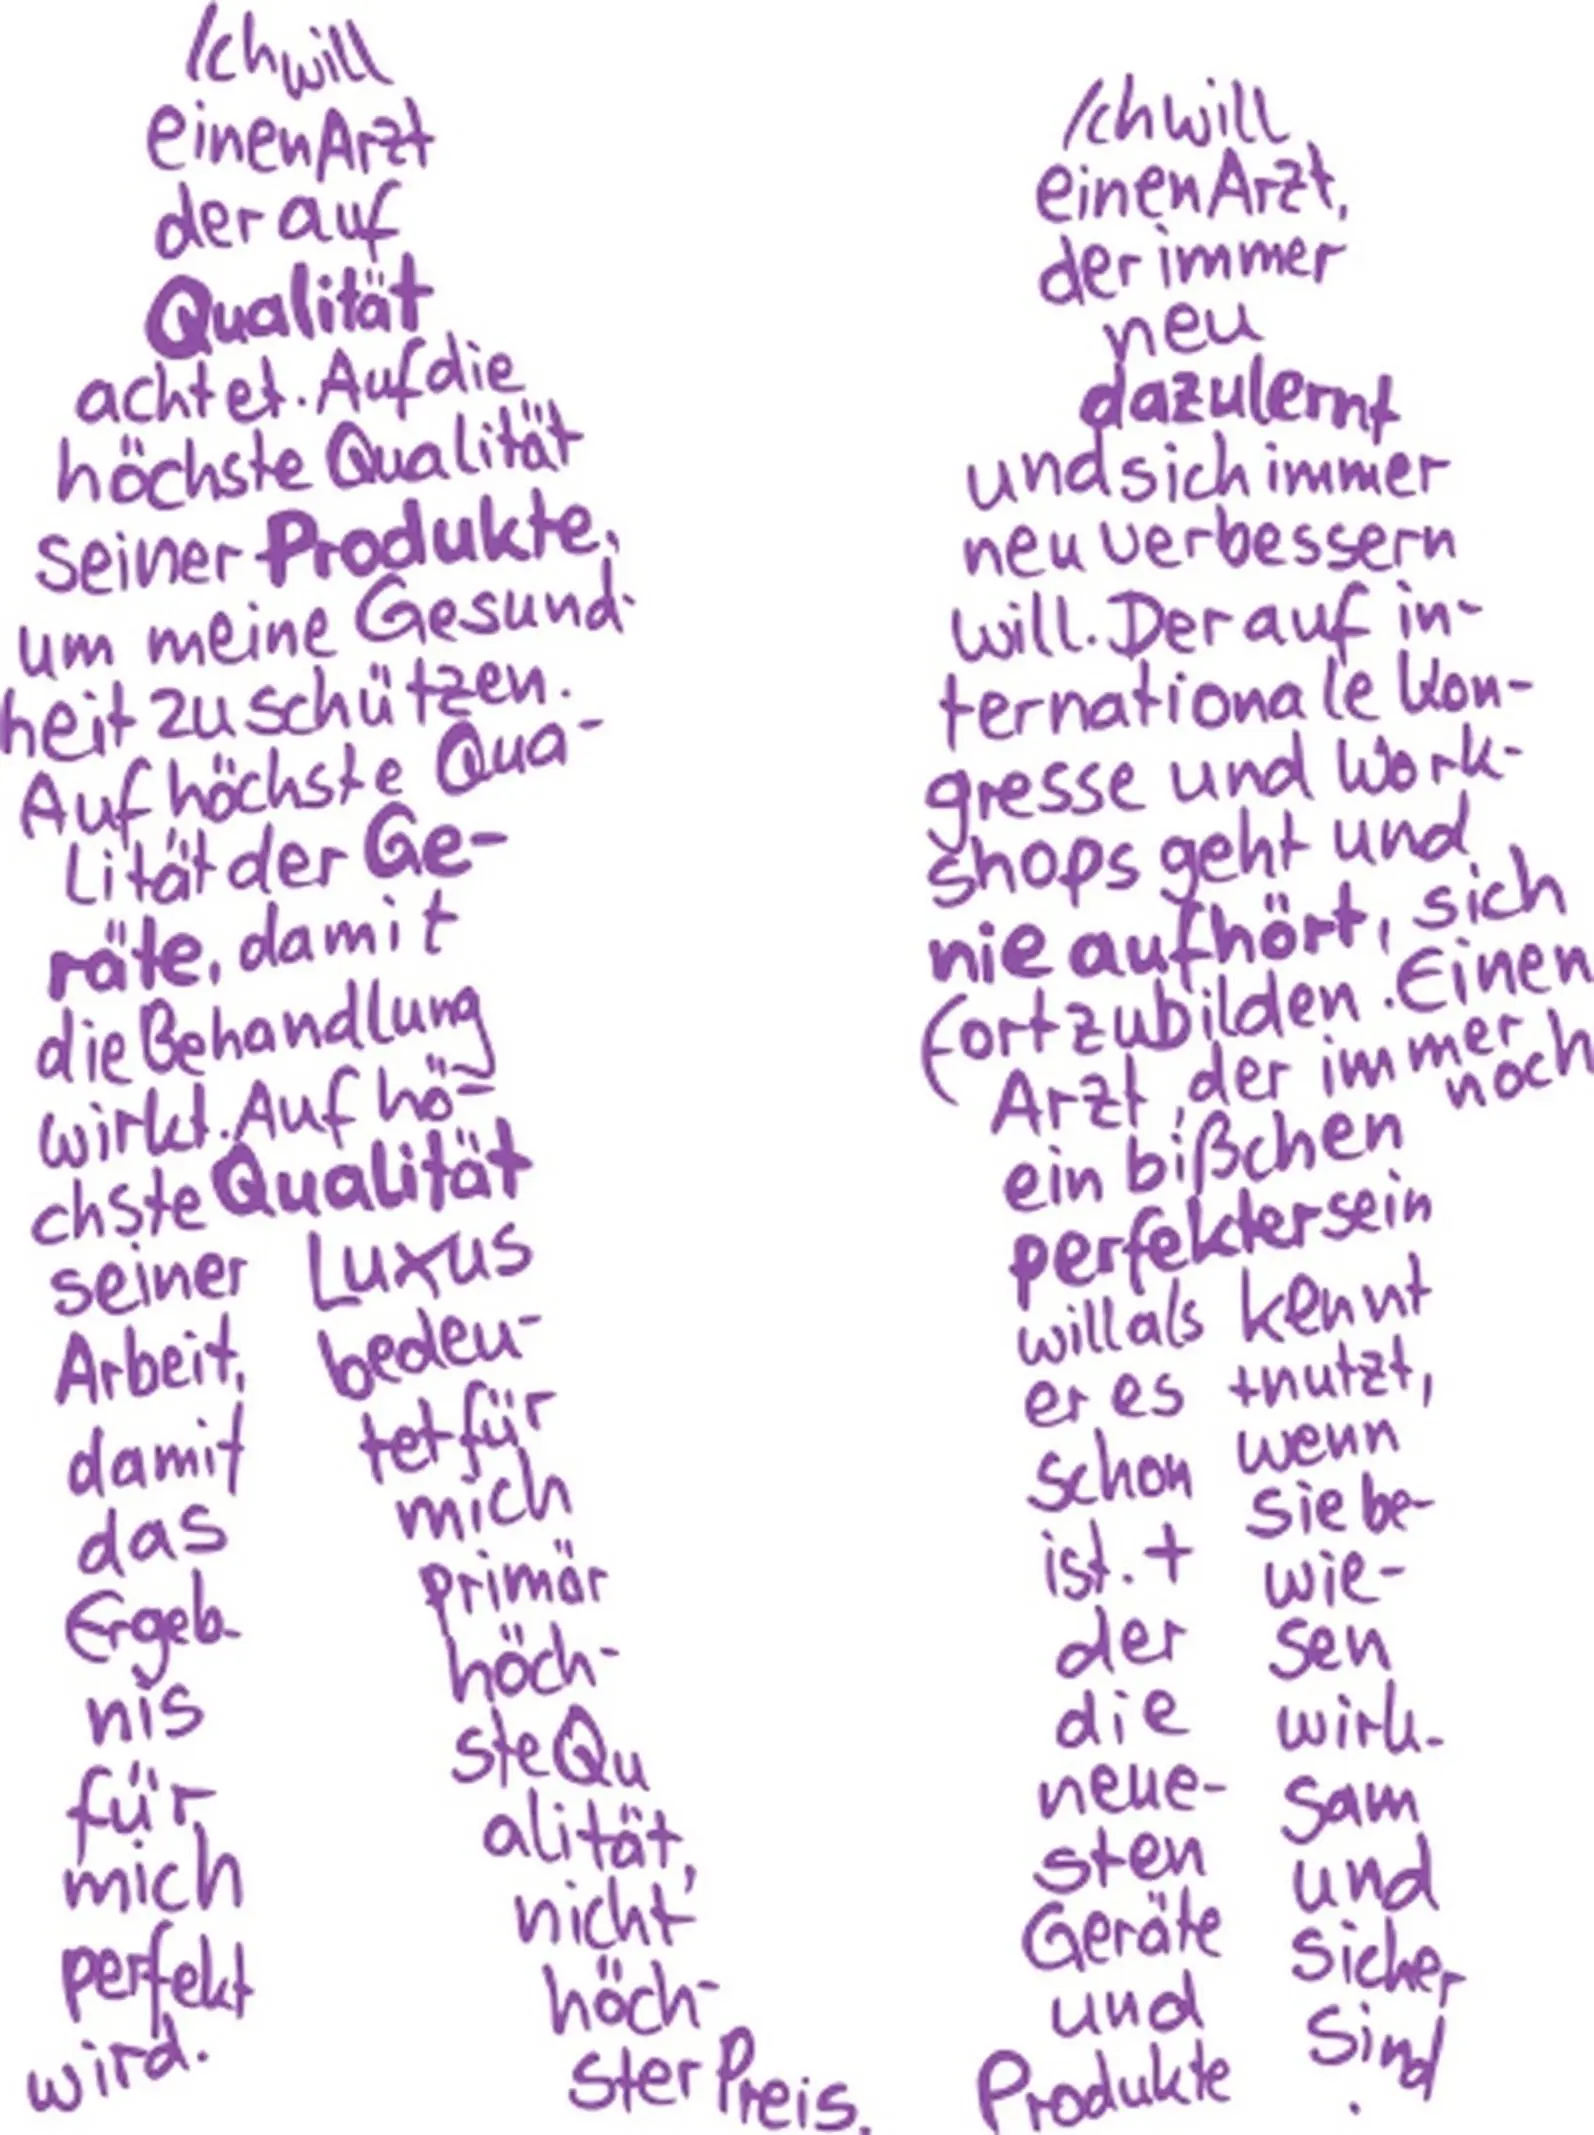 Ich will
einen Arzt
der auf
Qualität
achtet. Auf die
höchste Qualität
seiner Produkte,
um meine Gesund-
heit zu schützen.
Auf höchste Qua-
lität der Ge-
räte, damit
die Behandlung
wirkt. Auf hö-
chste Qualität
seiner
Arbeit,
damit
das
Ergeb-
nis
für
mich
perfekt
wird.
Luxus
bedeu-
tet für
mich
primär
höch-
ste Qu
alität,
nicht
höch-
ster Preis.
Ich will
einen Arzt,
der immer
neu
dazulernt
und sich immer
neu verbessern
will. Der auf in-
ternationale Kon-
gresse und Work-
shops geht und
nie aufhört, sich
fortzubilden. Einen
Arzt, der immer noch
ein bißchen
perfekter sein
will als
er es
schon
ist. +
der
die
neue-
sten
Geräte
und
Produkte
kennt
+ nutzt,
wenn
sie be-
wie-
sen
wirk-
sam
und
sicher
sind
.